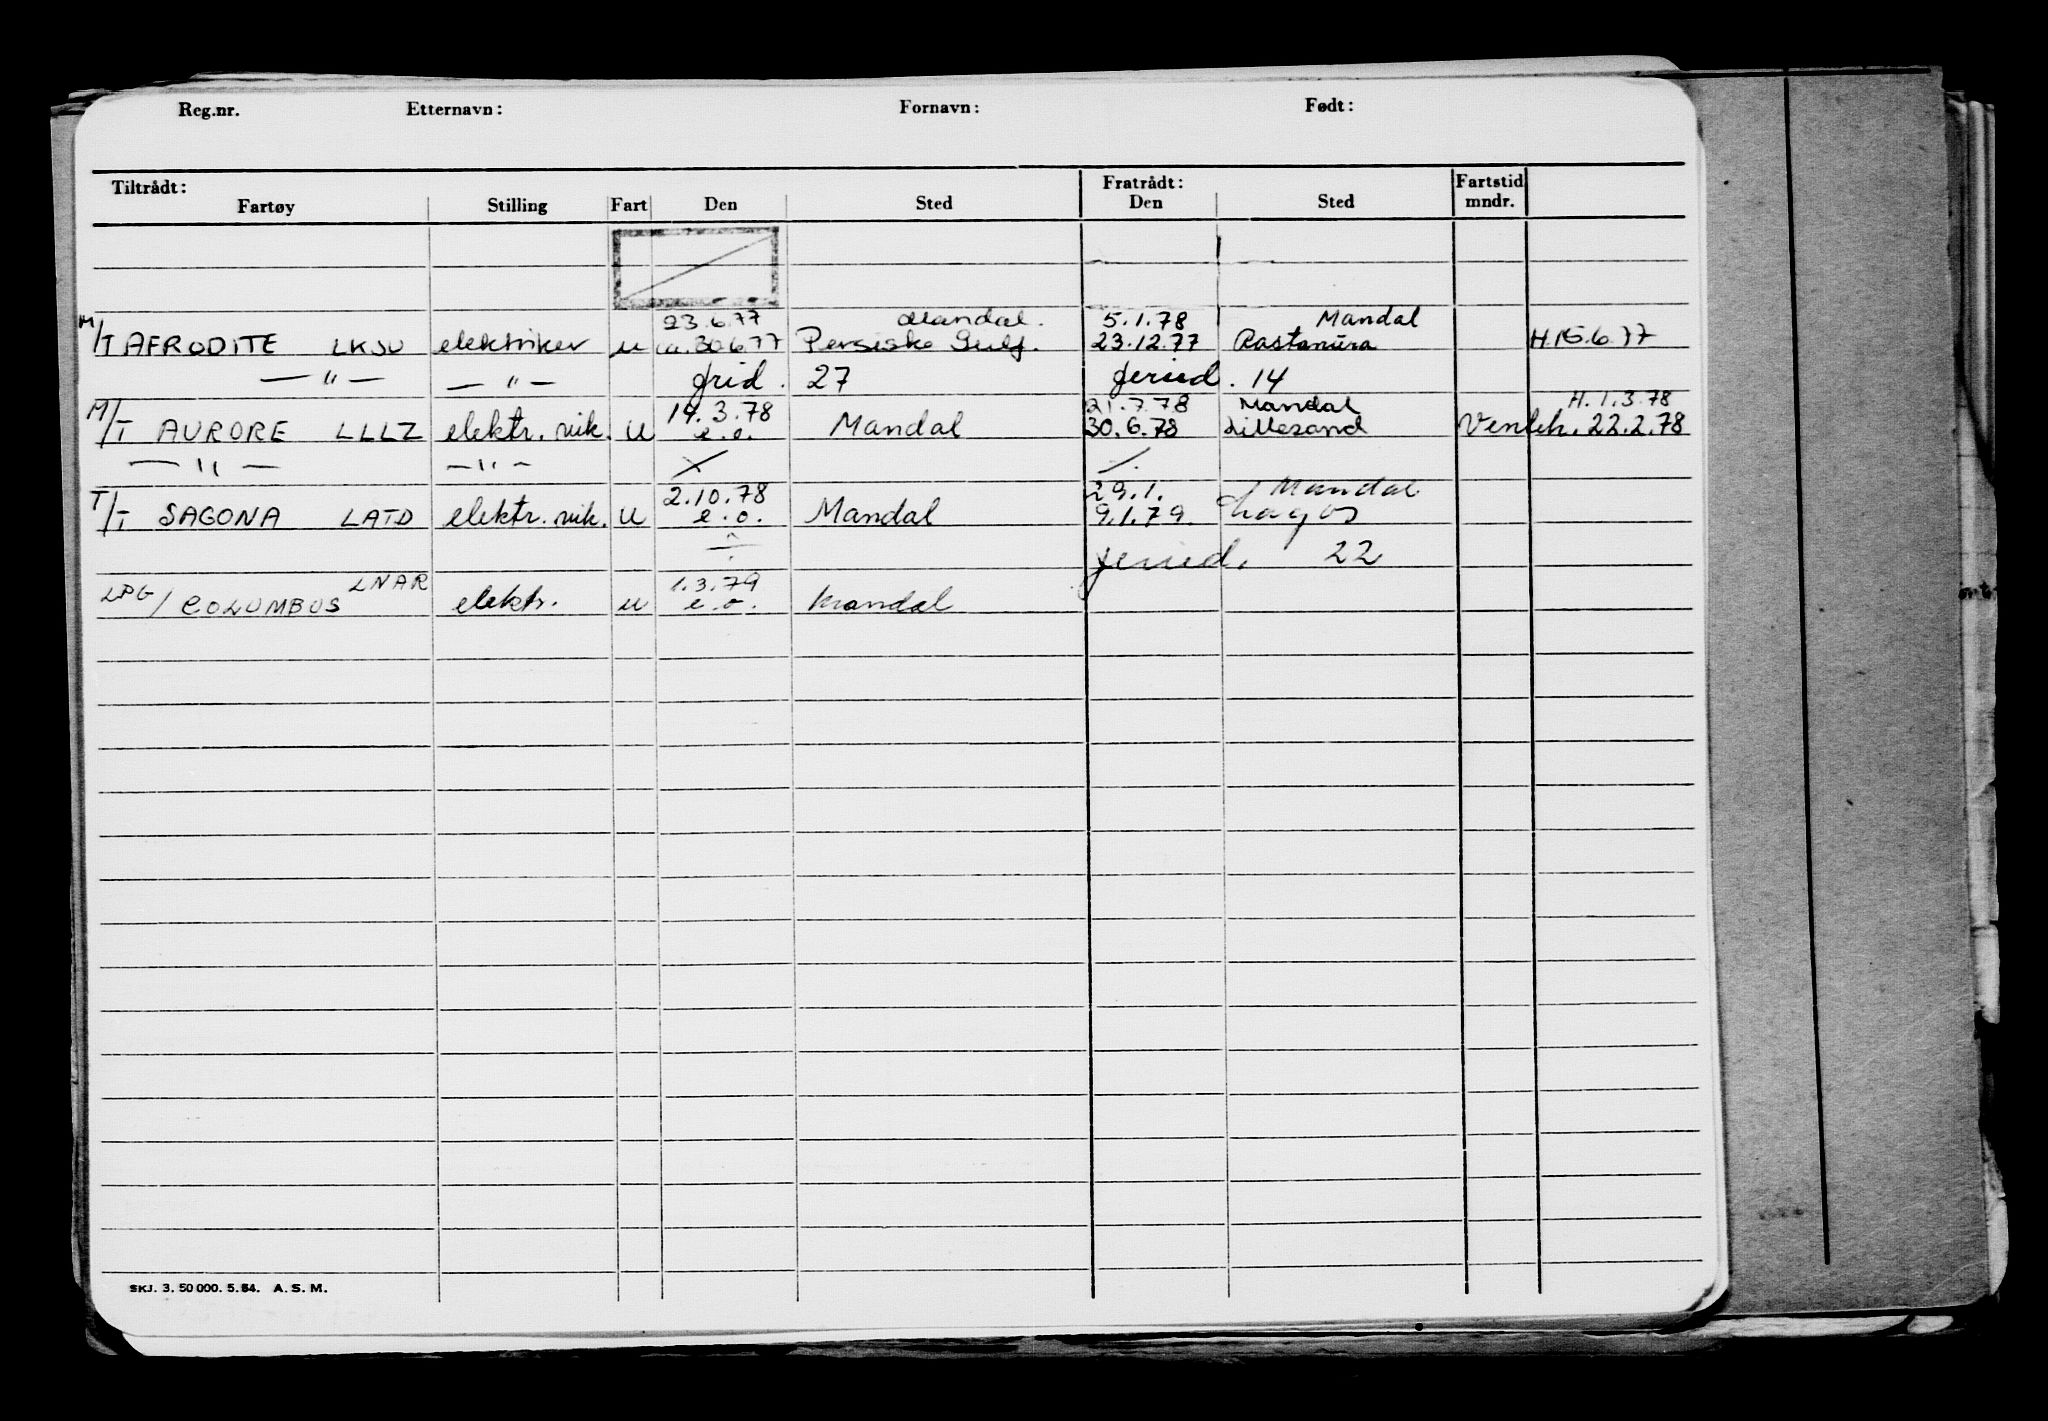 Reg.nr. Etternavn: Fornavn: Født:
Tiltrådt: Fratrådt: Fartstid
Fartøy Stilling Fart Den Sted Den Sted mndr.
23.6.77 Mandal. 5.1.78 Mandal
M/T AFRODITE LKSU elektriker u ca. 30.6.77 Persiske Gulf. 23.12.77 Rastanura H.15.6.77
— " — — " — frid. 27 feried. 14
14.3.78 21.7.78 Mandal H.1.3.78
M/T AURORE LLLZ elektr. vik. u e.o. Mandal 30.6.78 Lillesand Venteh. 22.2.78
— " — — " —
2.10.78 29.1. Mandal
T/T SAGONA LATD elektr. vik. u e.o. Mandal 9.1.79. Lagos
feried. 22
LNAR 1.3.79
LPG/ COLUMBUS elektr. u e.o. Mandal
SKJ. 3. 50 000. 5. 64. A. S. M.